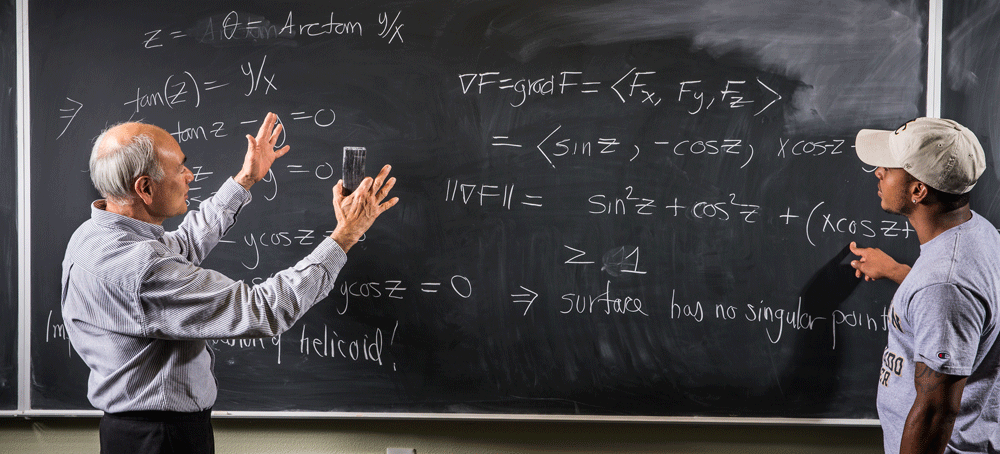 z = θ = Arctan y/x
⇒ tan(z) = y/x
tan z - y = 0
y = 0
- ycosz =
ycosz = 0
of helicoid!
∇F = grad F = ⟨Fx, Fy, Fz⟩
= ⟨sinz, -cosz, xcosz
||∇F|| = sin²z + cos²z + (xcosz+
≥ 1
⇒ surface has no singular point